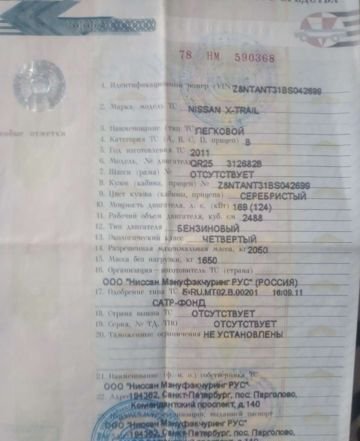 СРЕДСТВА
78 НМ 590368
1. Идентификационный номер (VIN) Z8NTANT31BS042699
2. Марка, модель ТС NISSAN X-TRAIL
3. Наименование (тип ТС) ЛЕГКОВОЙ
4. Категория ТС (A, B, C, D, прицеп) B
5. Год изготовления ТС 2011
6. Модель, № двигателя QR25 3126828
7. Шасси (рама) № ОТСУТСТВУЕТ
8. Кузов (кабина, прицеп) № Z8NTANT31BS042699
9. Цвет кузова (кабины, прицепа) СЕРЕБРИСТЫЙ
10. Мощность двигателя, л. с. (кВт) 169 (124)
11. Рабочий объем двигателя, куб. см 2488
12. Тип двигателя БЕНЗИНОВЫЙ
13. Экологический класс ЧЕТВЕРТЫЙ
14. Разрешенная максимальная масса, кг 2050
15. Масса без нагрузки, кг 1650
16. Организация - изготовитель ТС (страна)
ООО "Ниссан Мануфэкчуринг РУС" (РОССИЯ)
17. Одобрение типа ТС E-RU.MT02.B.00201 16.09.11
САТР-ФОНД
18. Страна вывоза ТС ОТСУТСТВУЕТ
19. Серия, № ТД, ТПО ОТСУТСТВУЕТ
20. Таможенные ограничения НЕ УСТАНОВЛЕНЫ
21. Наименование (ф. и. о.) собственника ТС
ООО "Ниссан Мануфэкчуринг РУС"
22. Адрес 194362, Санкт-Петербург, пос. Парголово,
Комендантский проспект, д. 140
23. Наименование организации, выдавшей паспорт
ООО "Ниссан Мануфэкчуринг РУС"
194362, Санкт-Петербург, пос. Парголово,
проспект, д. 140
Особые отметки